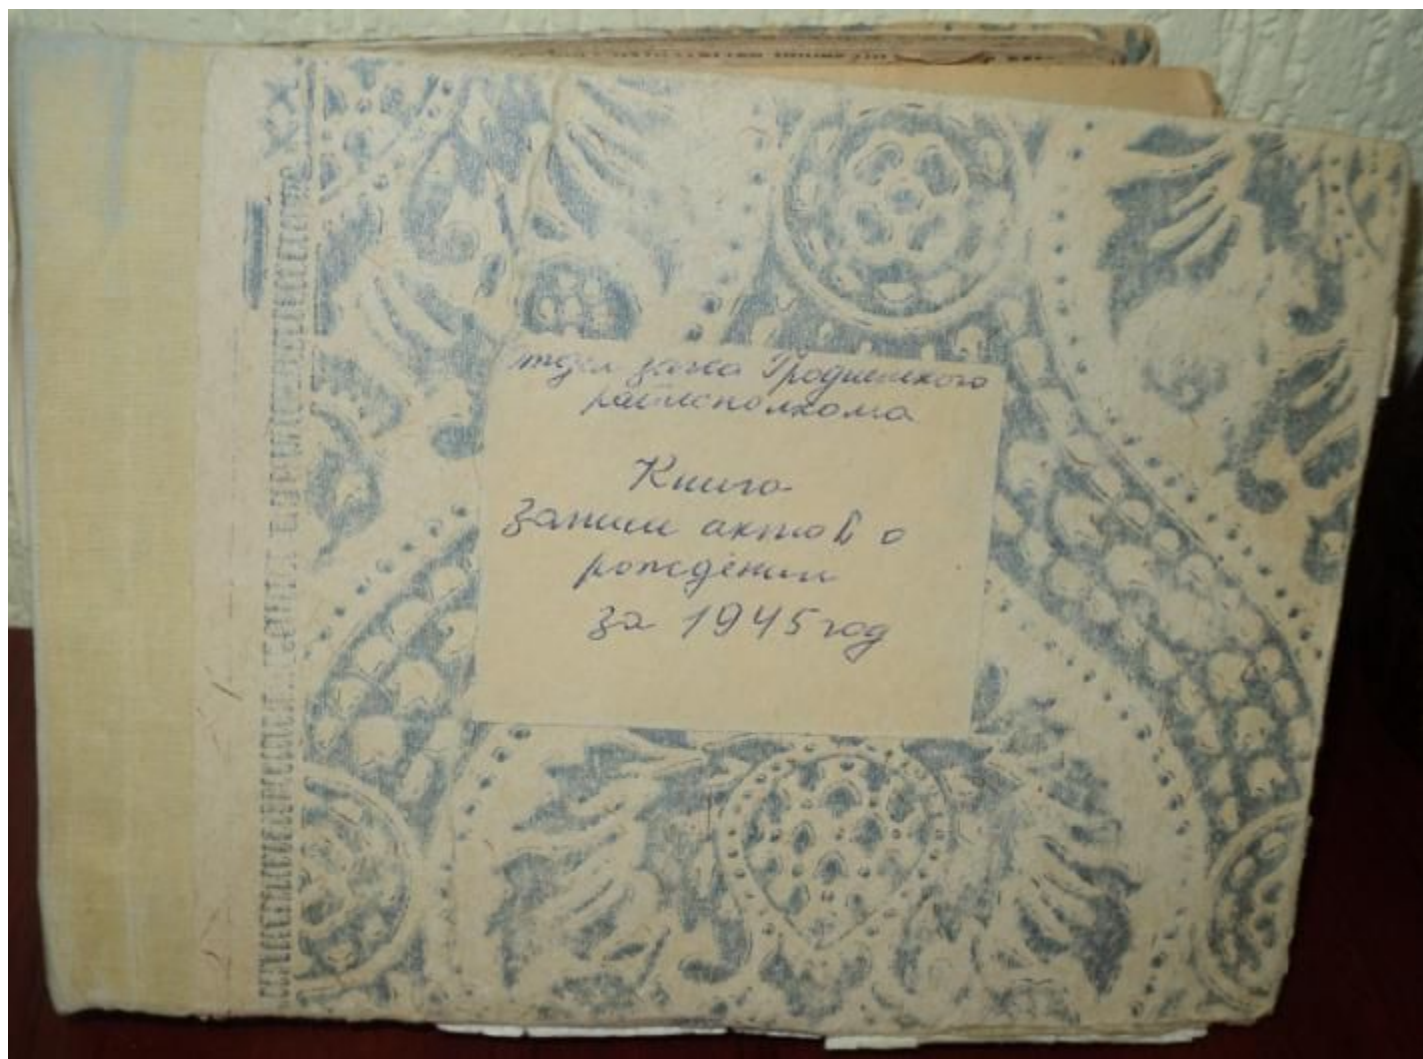 тдел загса Гродненского
райисполкома
Книга
записи актов о
рождении
за 1945 год